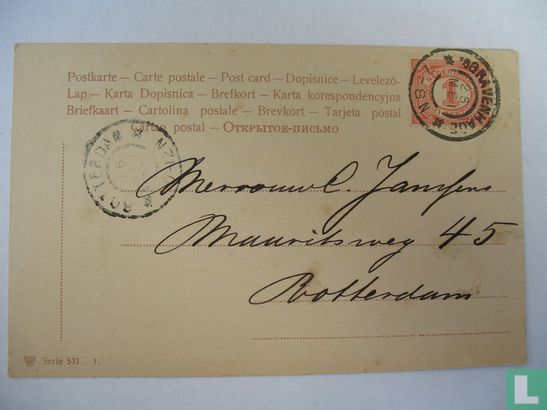 Postkarte — Carte postale — Post card — Dopisnice — Levelező-
Lap — Karta Dopisnica — Brefkort — Karta korespondencyjna
Briefkaart — Cartolina postale — Brevkort — Tarjeta postal
Cartão postal — Открытое-письмо
'SGRAVENHAGE
1
ROTTERDAM
Mevrouw C. Janssens
Mauritsweg 45
Rotterdam
Serie 531. 1.